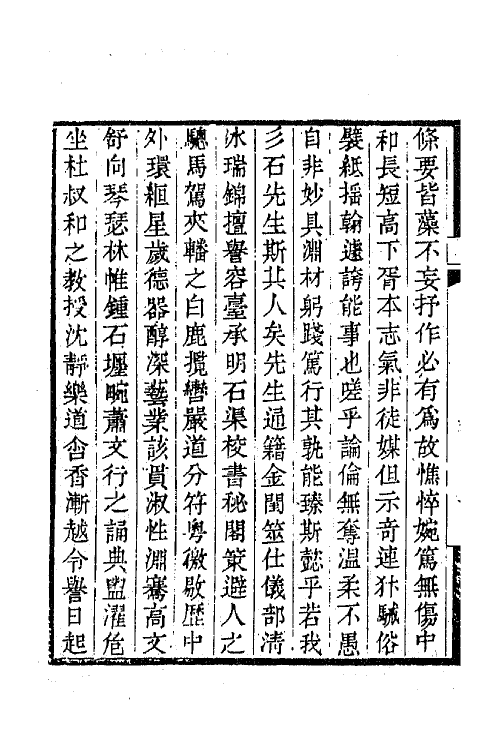 條要皆藻不妄抒作必有為故憔悴婉篤無傷中
和長短高下胥本志氣非徒媒但示奇連犿駴俗
襞紙揺翰遽誇能事也嗟乎論倫無奪溫柔不愚
自非妙具淵材躬踐篤行其孰能臻斯懿乎若我
彡石先生斯其人矣先生通籍金閨筮仕儀部清
冰瑞錦擅譽容臺承明石渠校書秘閣策避人之
驄馬駕夾轓之白鹿攬轡嚴道分符粤徼敭歴中
外環絙星歲德器醇深藝業該貫淑性淵騫高文
舒向琴瑟林帷鍾石壥畹蕭文行之誦典盥濯危
坐杜叔和之教授沈靜樂道㫿香漸越令譽日起